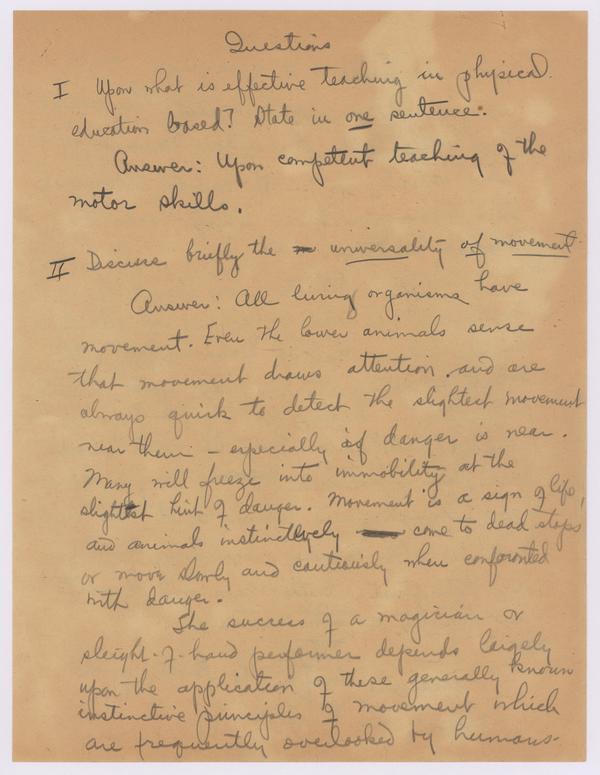 Questions
I Upon what is effective teaching in physical
education based? State in one sentence.
Answer: Upon competent teaching of the
motor skills.
II Discuss briefly the universality of movement
Answer: All living organisms have
movement. Even the lower animals sense
that movement draws attention and are
always quick to detect the slightest movement
near them - especially if danger is near.
Many will freeze into immobility at the
slightest hint of danger. Movement is a sign of life,
and animals instinctively come to dead stops
or move slowly and cautiously when confronted
with danger.
The success of a magician or
sleight-of-hand performer depends largely
upon the application of these generally known
instinctive principles of movement which
are frequently overlooked by humans-